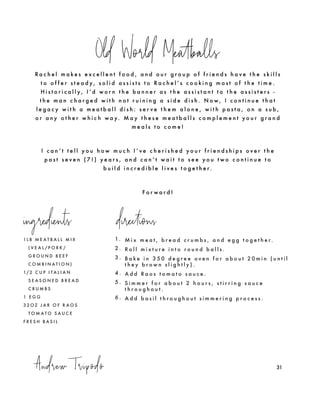 Old World Meatballs
Rachel makes excellent food, and our group of friends have the skills
to offer steady, solid assists to Rachel's cooking most of the time.
Historically, I'd worn the banner as the assistant to the assisters -
the man charged with not ruining a side dish. Now, I continue that
legacy with a meatball dish: serve them alone, with pasta, on a sub,
or any other which way. May these meatballs complement your grand
meals to come!
I can't tell you how much I've cherished your friendships over the
past seven (7!) years, and can't wait to see you two continue to
build incredible lives together.
Forward!
ingredients
1LB MEATBALL MIX
(VEAL/PORK/
GROUND BEEF
COMBINATION)
1/2 CUP ITALIAN
SEASONED BREAD
CRUMBS
1 EGG
32OZ JAR OF RAOS
TOMATO SAUCE
FRESH BASIL
directions
1. Mix meat, bread crumbs, and egg together.
2. Roll mixture into round balls.
3. Bake in 350 degree oven for about 20min (until
they brown slightly).
4. Add Raos tomato sauce.
5. Simmer for about 2 hours, stirring sauce
throughout.
6. Add basil throughout simmering process.
Andrew Tripodo
31